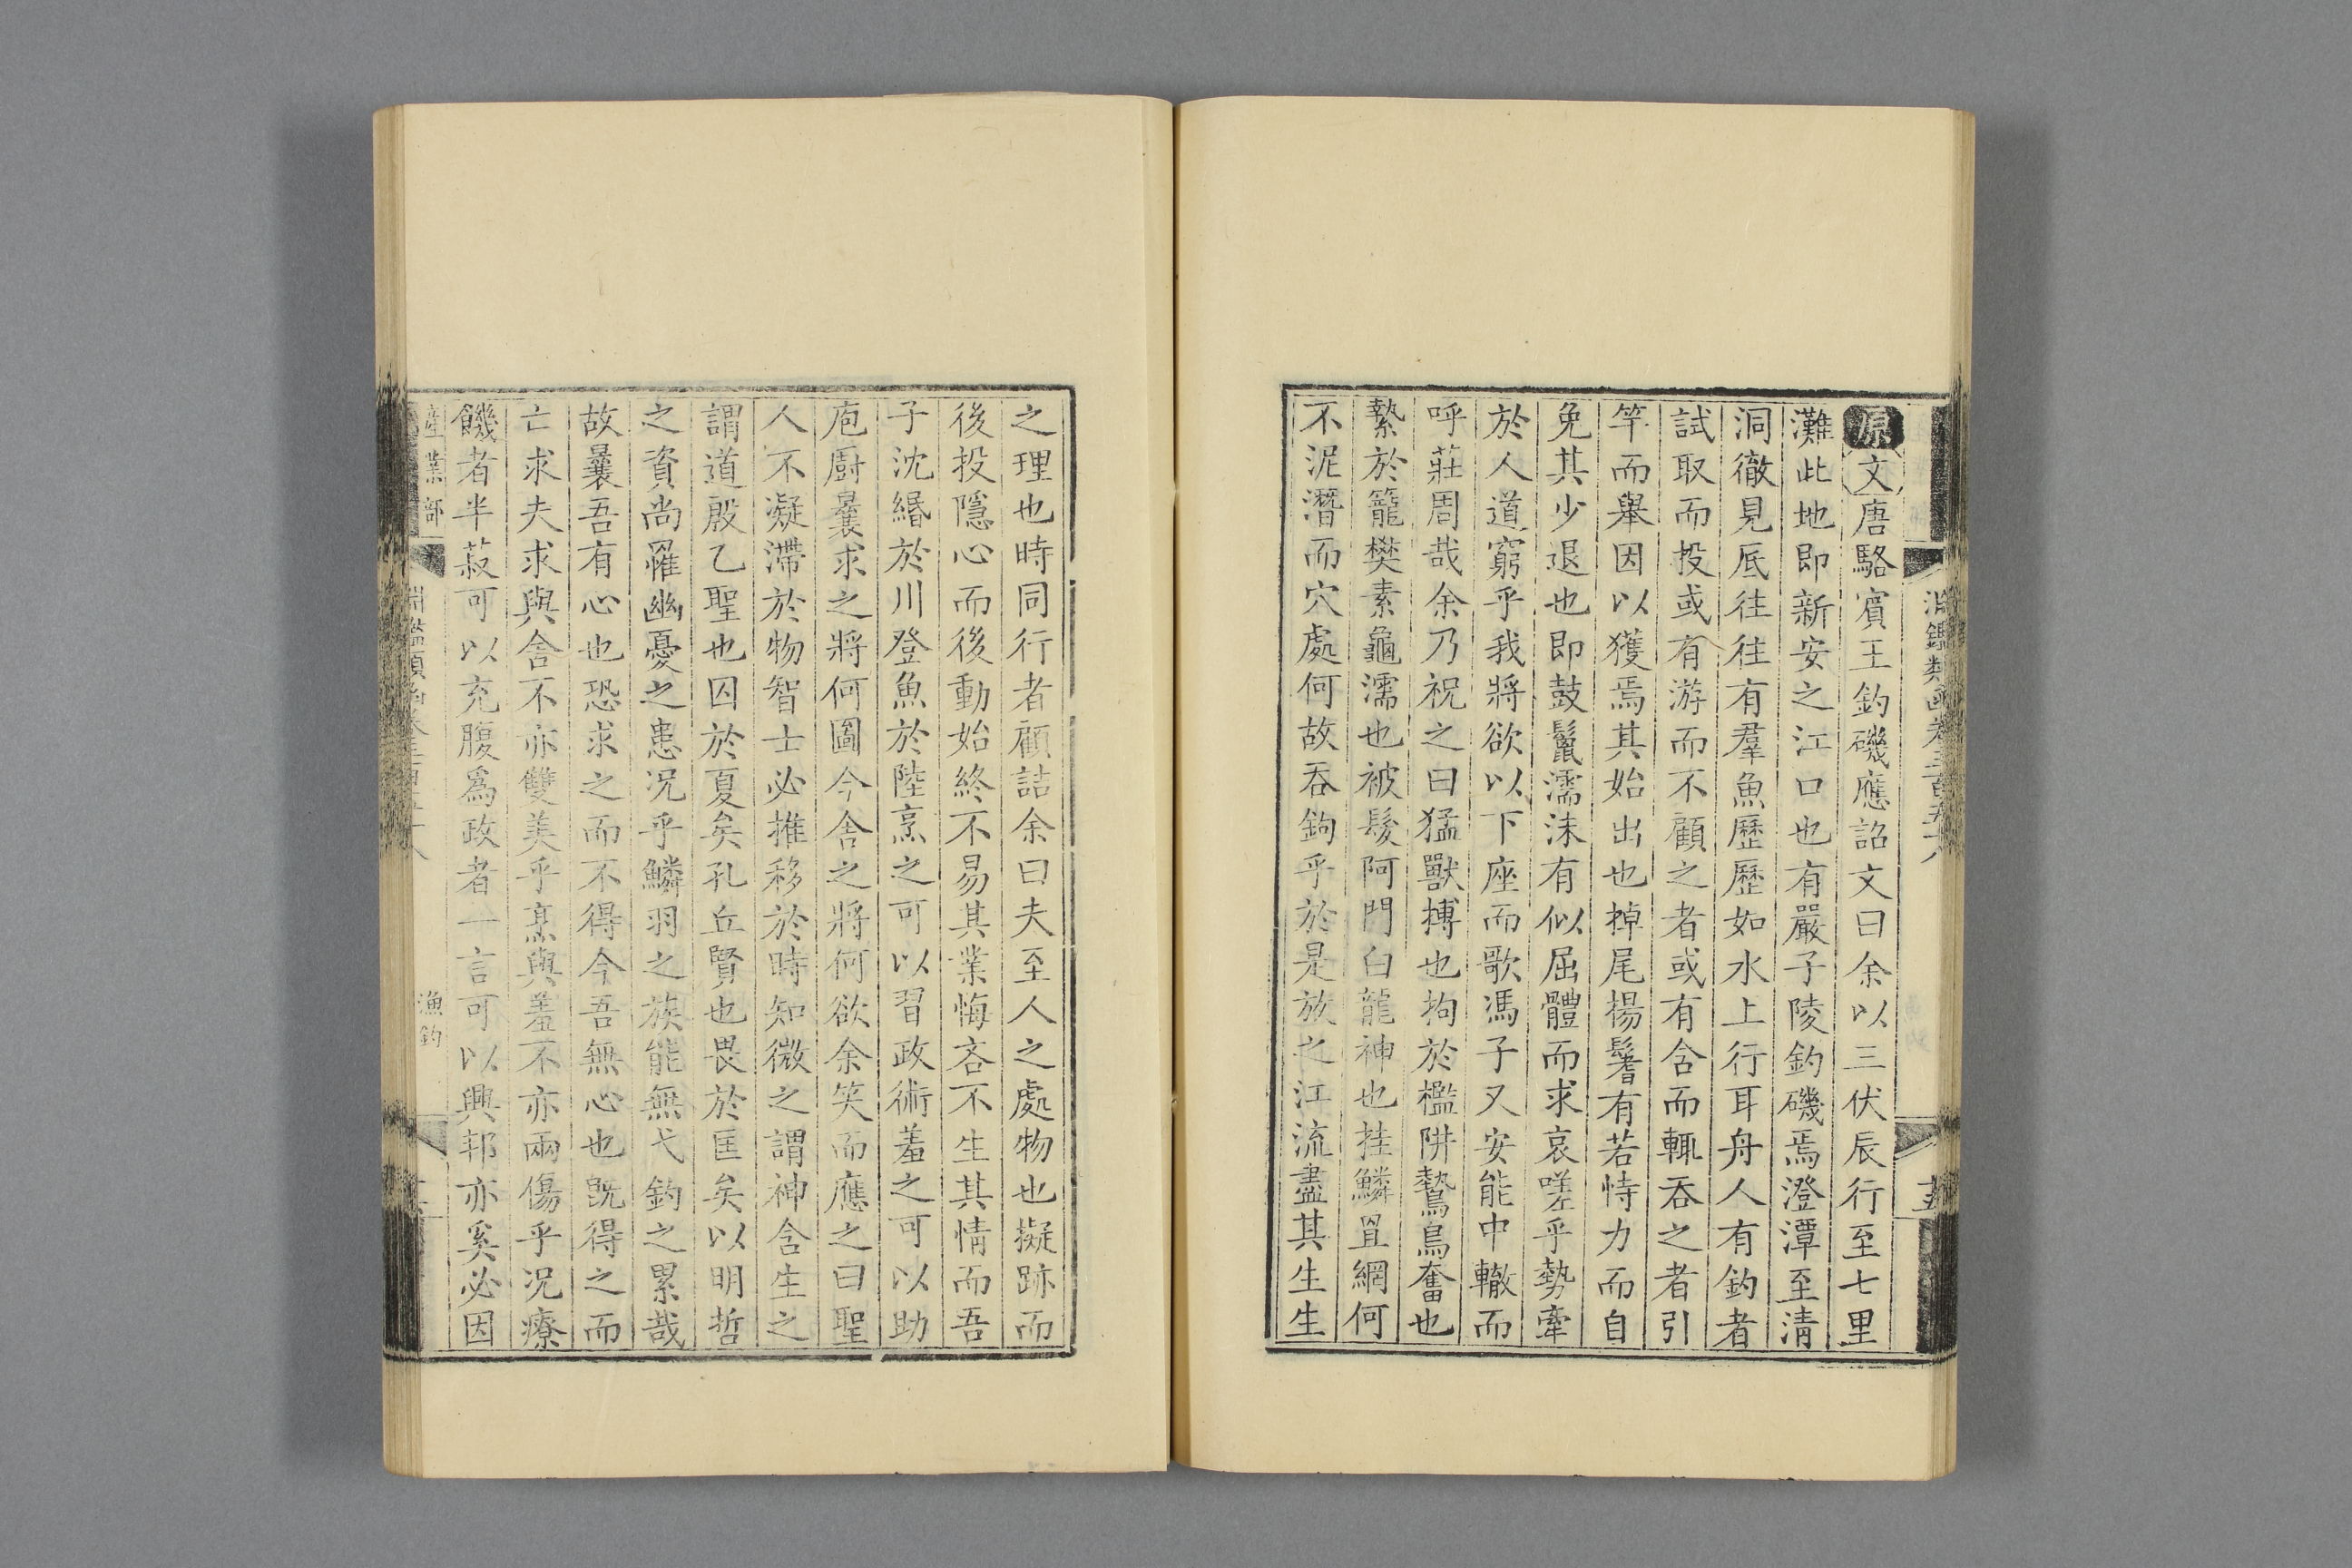 淵鑑類函卷三百五十八
十五
原文唐駱賓王釣磯應詔文曰余以三伏辰行至七里
灘此地即新安之江口也有嚴子陵釣磯焉澄潭至清
洞徹見底往往有羣魚歷歷如水上行耳舟人有釣者
試取而投或有游而不顧之者或有含而輒吞之者引
竿而舉因以獲焉其始出也掉尾揚鬐有若恃力而自
免其少退也即鼓鬣濡沫有似屈體而求哀嗟乎勢牽
於人道窮乎我將欲以下座而歌馮子又安能中轍而
呼莊周哉余乃祝之曰猛獸搏也拘於檻阱鷙鳥奮也
縶於籠樊素龜濡也被髮阿門白龍神也挂鱗罝網何
不泥潛而穴處何故吞鉤乎於是放之江流盡其生生
之理也時同行者顧詰余曰夫至人之處物也擬跡而
後投隱心而後動始終不易其業悔吝不生其情而吾
子沈緡於川登魚於陸烹之可以習政術羞之可以助
庖廚曩求之將何圖今舍之將何欲余笑而應之曰聖
人不凝滯於物智士必推移於時知微之謂神含生之
謂道殷乙聖也囚於夏矣孔丘賢也畏於匡矣以明哲
之資尚罹幽憂之患況乎鱗羽之族能無弋釣之累哉
故曩吾有心也恐求之而不得今吾無心也旣得之而
亡求夫求與舍不亦雙美乎烹與羞不亦兩傷乎況療
饑者半菽可以充腹爲政者一言可以興邦亦奚必因
產業部
漁釣